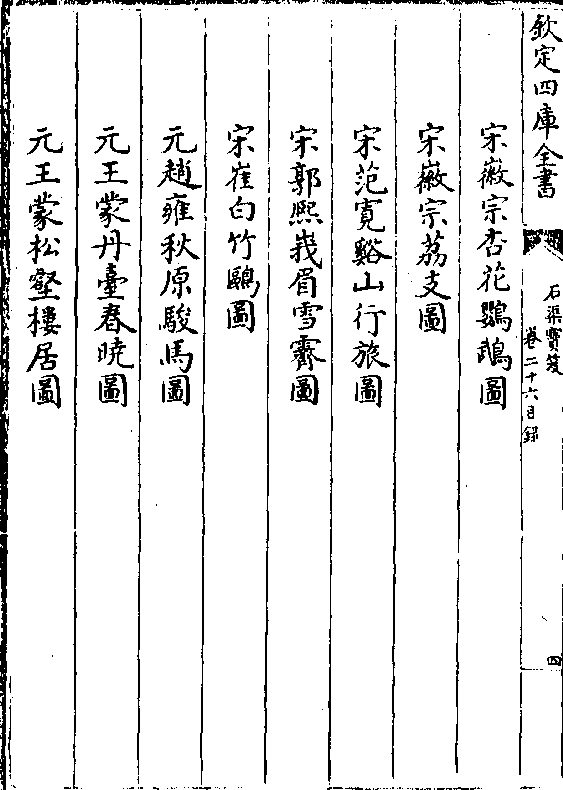 欽定四庫全書
石渠寳笈
卷二十六目録
四
宋徽宗杏花鸚鵡圖
宋徽宗荔支圖
宋范寛谿山行旅圖
宋郭熙峩眉雪霽圖
宋崔白竹鷗圖
元趙雍秋原駿馬圖
元王蒙丹臺春曉圖
元王蒙松壑樓居圖